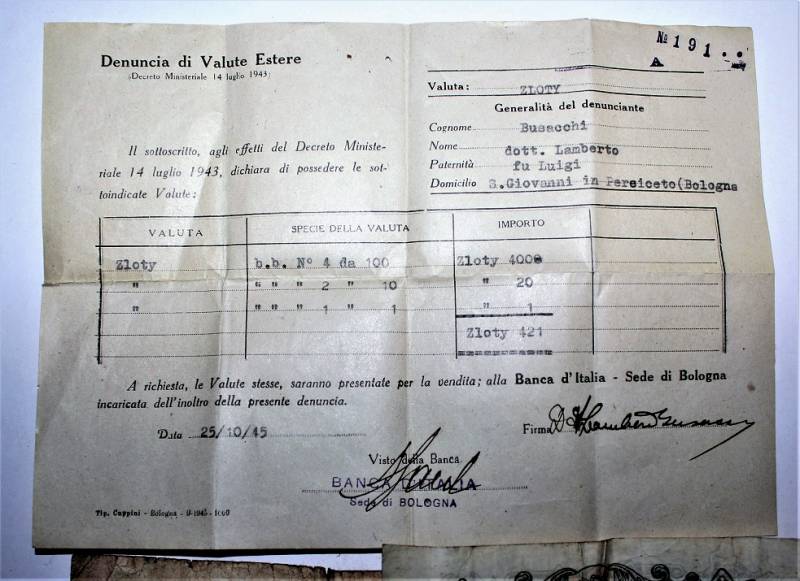 Denuncia di Valute Estere
(Decreto Ministeriale 14 luglio 1943)
Il sottoscritto, agli effetti del Decreto Ministe-
riale 14 luglio 1943, dichiara di possedere le sot-
toindicate Valute:
Nº 191
A
Valuta: ZLOTY
Generalità del denunciante
Cognome Busacchi
Nome dott. Lamberto
Paternità fu Luigi
Domicilio S.Giovanni in Persiceto(Bologna
VALUTA SPECIE DELLA VALUTA IMPORTO
Zloty b.b. Nº 4 da 100 Zloty 400
" " " 2 " 10 " 20
" " " " 1 " 1 " 1
Zloty 421
A richiesta, le Valute stesse, saranno presentate per la vendita; alla Banca d'Italia - Sede di Bologna
incaricata dell'inoltro della presente denuncia.
Data 25/10/45
Firma
Visto della Banca
BANCA D'ITALIA
Sede di BOLOGNA
Tip. Cappini - Bologna - 9-1945 - 1000